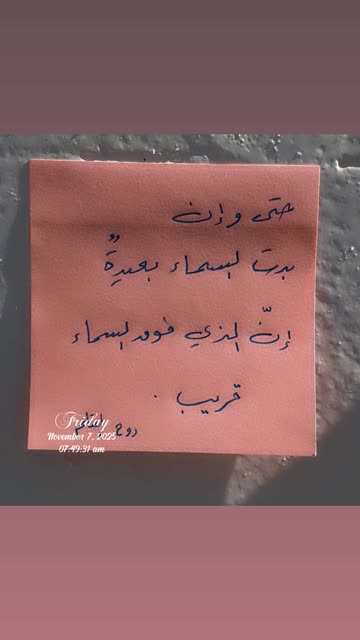 حتى وإن
بدت السماء بعيدةٌ
إنّ الذي فوق السماء
قريب .
Friday
November 7, 2025
07:49:31 am